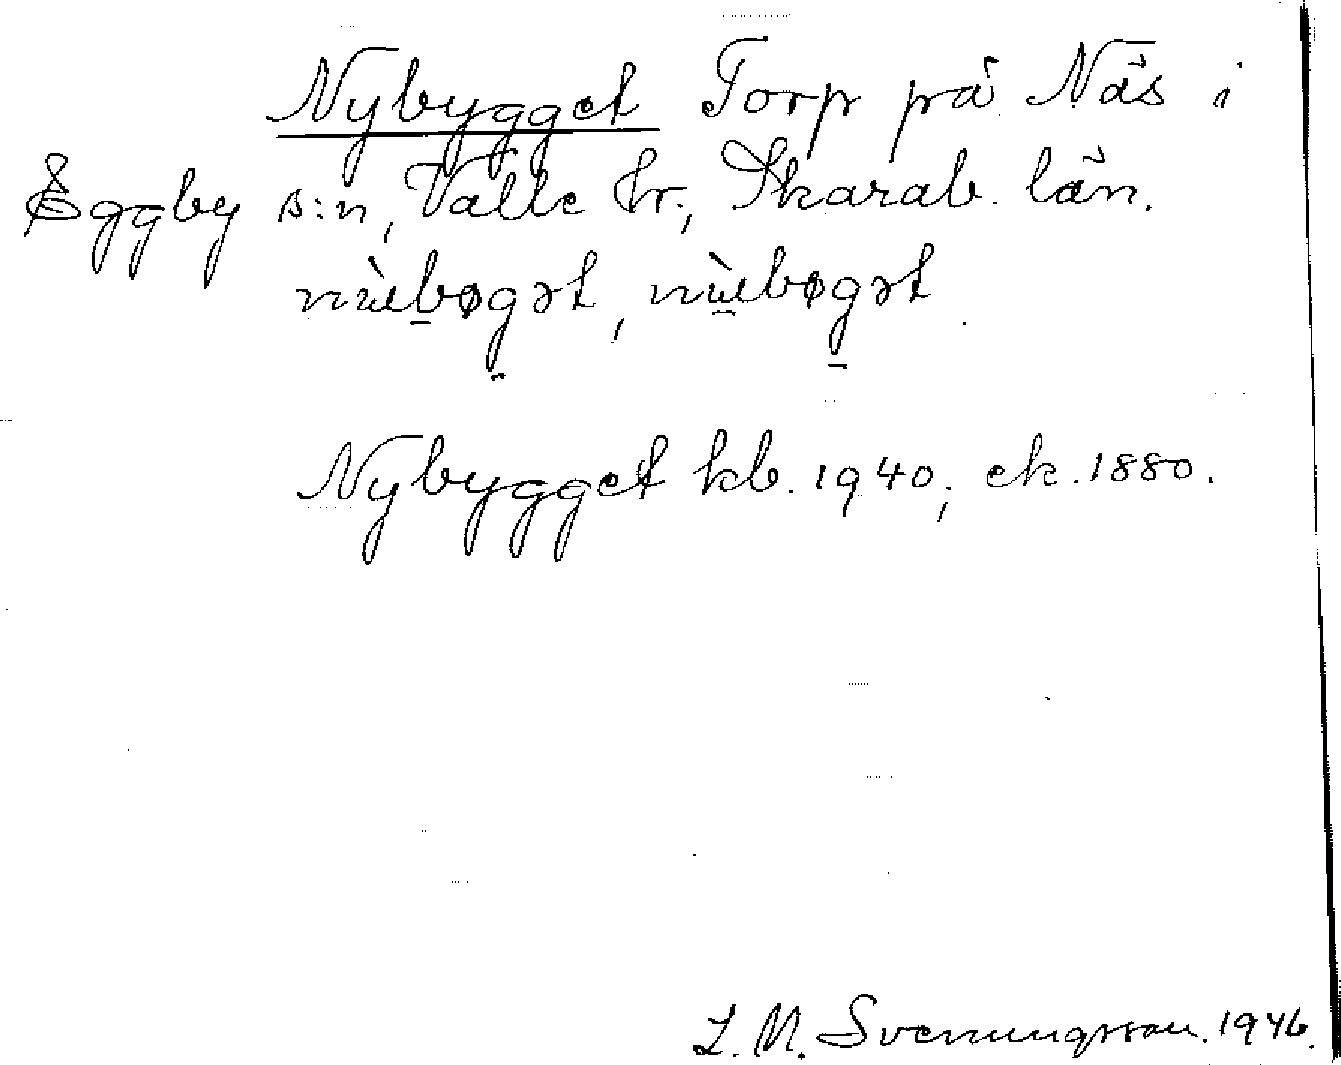 Nybygget Torp på Näs i
Eggby s:n, Valle hr., Skarab. län.
nɯ̀bøgət, nɯ̀bøgət
Nybygget kb. 1940; ek. 1880.
L. M. Svenungsson. 1946.